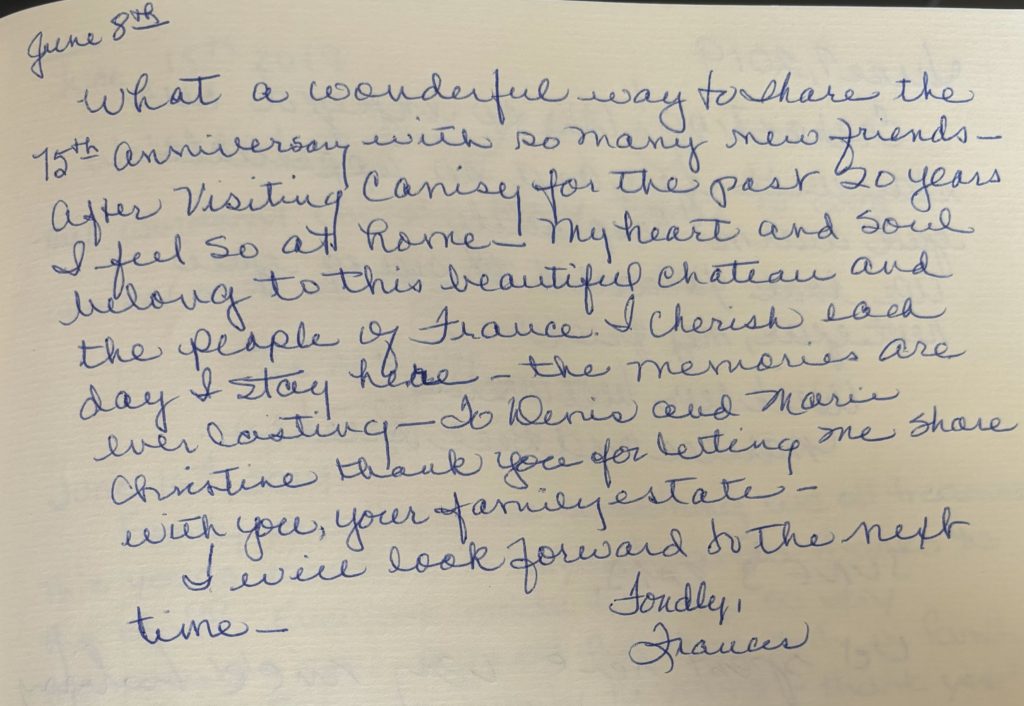 June 8th
What a wonderful way to share the
75th anniversary with so many new friends—
After Visiting Canisy for the past 20 years
I feel so at home— My heart and soul
belong to this beautiful chateau and
the people of France. I cherish each
day I stay here — the memories are
ever lasting — To Denis and Marie
Christine thank you for letting me share
with you, your family estate —
I will look forward to the next
time —
Fondly,
Frances